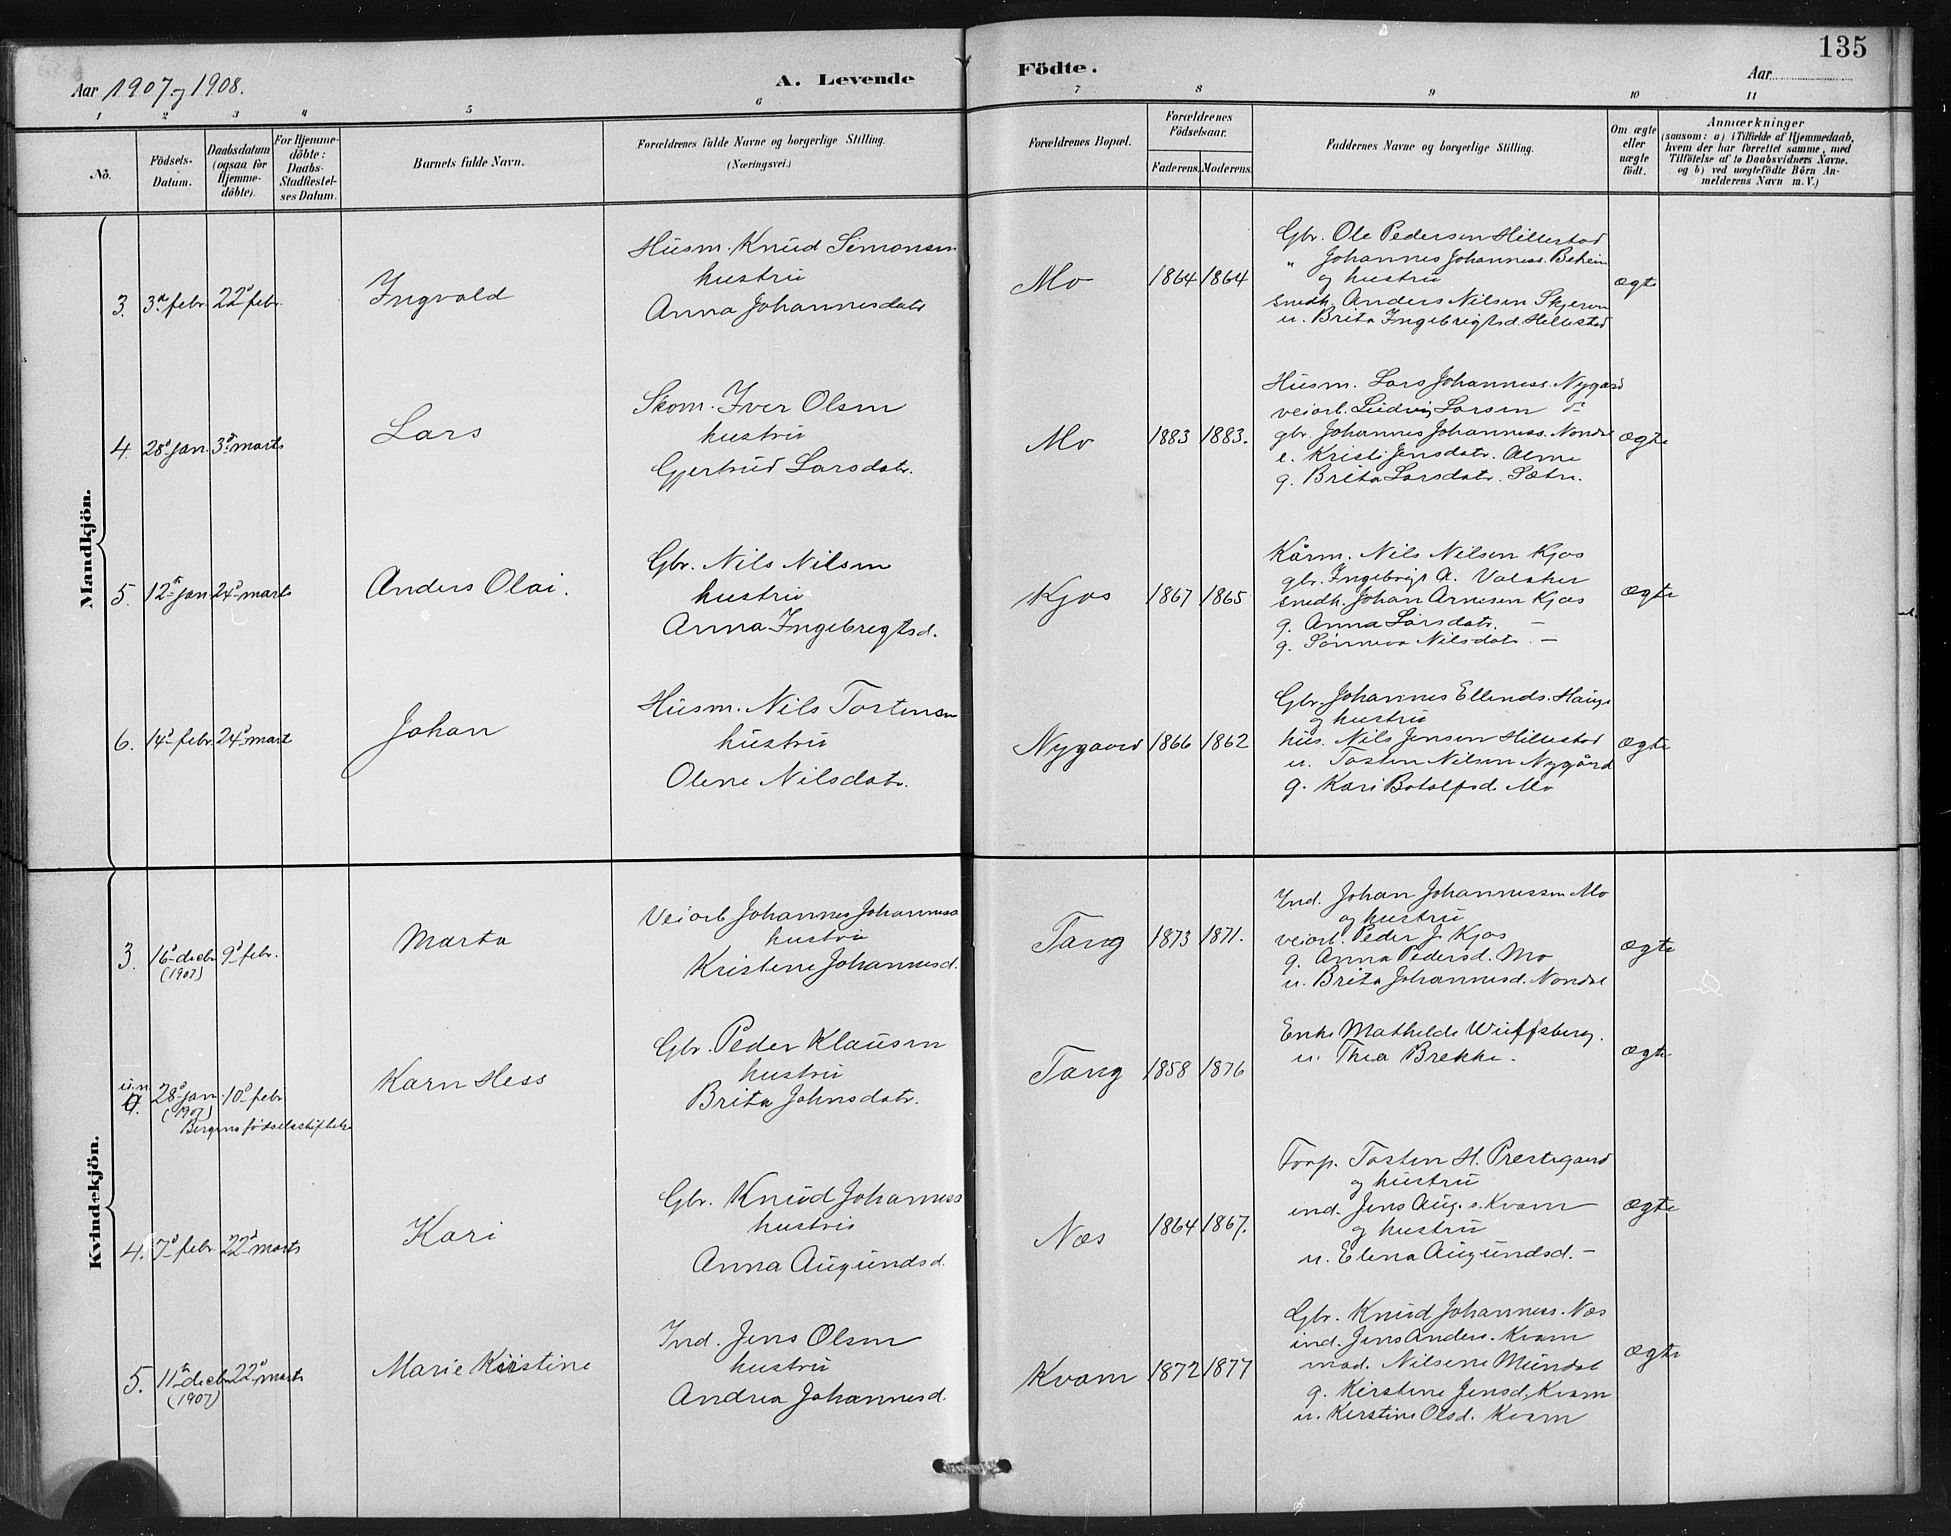 135
Aar 1907 og 1908.
A. Levende
Födte.
Aar
1 2 3 4 5 6 7 8 9 10 11
No.
Födsels-Datum.
Daabsdatum (ogsaa for Hjemme-döbte).
For Hjemme-döbte: Daabs-Stadfæstel-ses Datum.
Barnets fulde Navn.
Forældrenes fulde Navne og borgerlige Stilling.
(Næringsvei.)
Forældrenes Bopæl.
Forældrenes Födselsaar.
Faderens. Moderens.
Faddernes Navne og borgerlige Stilling.
Om ægte eller uægte født.
Anmærkninger
(saasom: a) i Tilfælde af Hjemmedaab,
hvem der har forrettet samme, med
Tilföielse af to Daabsvidners Navne.
og b) ved uægtefödte Börn An-
melderens Navn m. V.)
Mandkjön.
3. 3die febr. 22d febr.
Ingvald
Husm. Knud Simonsen
hustru
Anna Johannesdatr
Mo 1864 1864
Gbr. Ole Pedersen Hillestad
" Johannes Johanness.
og hustru
snedk. Anders Nilsen
u. Brita Ingebrigtsd. Hillestad
ægte
4. 28d jan 3d marts
Lars
Skom. Iver Olsen
hustru
Gjertrud Larsdatr.
Mo 1883 1883.
Husm. Lars Johanness. Nygard
veiarb. Ludvig Larsen do
gbr. Johannes Johanness. Nondal
e. Kristi Jensdatr. Alme
g. Brita Larsdatr. Sætre.
ægte
5. 12te jan 24d marts
Anders Olai.
Gbr. Nils Nilsen
hustru
Anna Ingebregtsd.
Kjos 1867 1865
Kårm. Nils Nilsen Kjos
gbr. Ingebrigt A.
snedk. Johan Arnesen Kjos
g. Anna Larsdatr. —
g. Sønneva Nilsdatr. —
ægte
6. 14d febr. 24d mart
Johan
Husm. Nils Tostensen
hustru
Olene Nilsdatr.
Nygaard 1866 1862
Gbr. Johannes Ellends. Hauge
og hustru
hus. Nils Jensen Hillestad
u. Tosten Nilsen Nygård
g. Kari Botolfsd. Mo
ægte
Kvindekjön.
3. 16d decbr (1907) 9d febr.
Marta
Veiarb. Johannes Johannesen
hustru
Kristene Johannesd.
Tang 1873 1871.
Ind. Johan Johannessen Mo
og hustru
veiarb. Peder J. Kjos
g. Anna Pedersd. Mo
u. Brita Johannesd. Nondal
ægte
u.n. 28d jan (1907) 10d febr.
Bergens fødselsstiftelse
Karn Hess
Gbr. Peder Klausen
hustru
Brita Johnsdatr.
Tang 1858 1876
Enke Mathilde Wulffsberg.
u. Thea Brekke.
ægte
4. 7d febr. 22d marts
Kari
Gbr. Knud Johanness
hustru
Anna Augundsd.
Næs 1864 1867.
Forp. Tosten H. Prestegaard
og hustru
ind. Jens Aug. s. Kvam
og hustru
u. Elena Augundsd. —
ægte
5. 11te decbr (1907) 22d marts
Marie Kirstine
Ind. Jens Olsen
hustru
Andrea Johannesd.
Kvam 1872 1877
Gbr. Knud Johanness. Næs
ind. Jens Anders. Kvam
mad. Nilsene Mundal
g. Kirstine Jensd. Kvam
u. Kerstine Olsd. Kvam
ægte